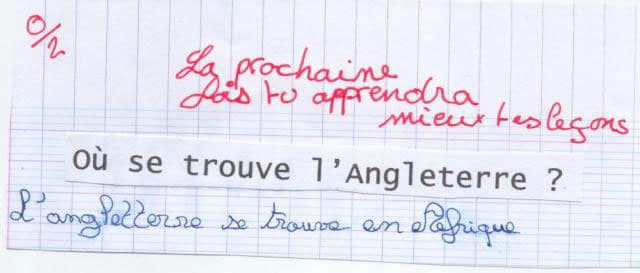 0/2
La prochaine
fois tu apprendra
mieux tes leçons
Où se trouve l'Angleterre ?
L'angletterre se trouve en Afrique